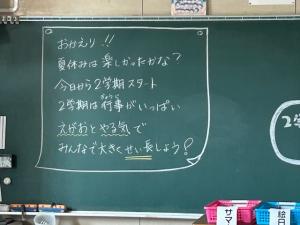 おかえり!!
夏休みは楽しかったかな?
今日から2学期スタート
ぎょうじ
2学期は行事がいっぱい
えがおとやる気で
みんなで大きくせい長しよう!
2学
サマ
絵日